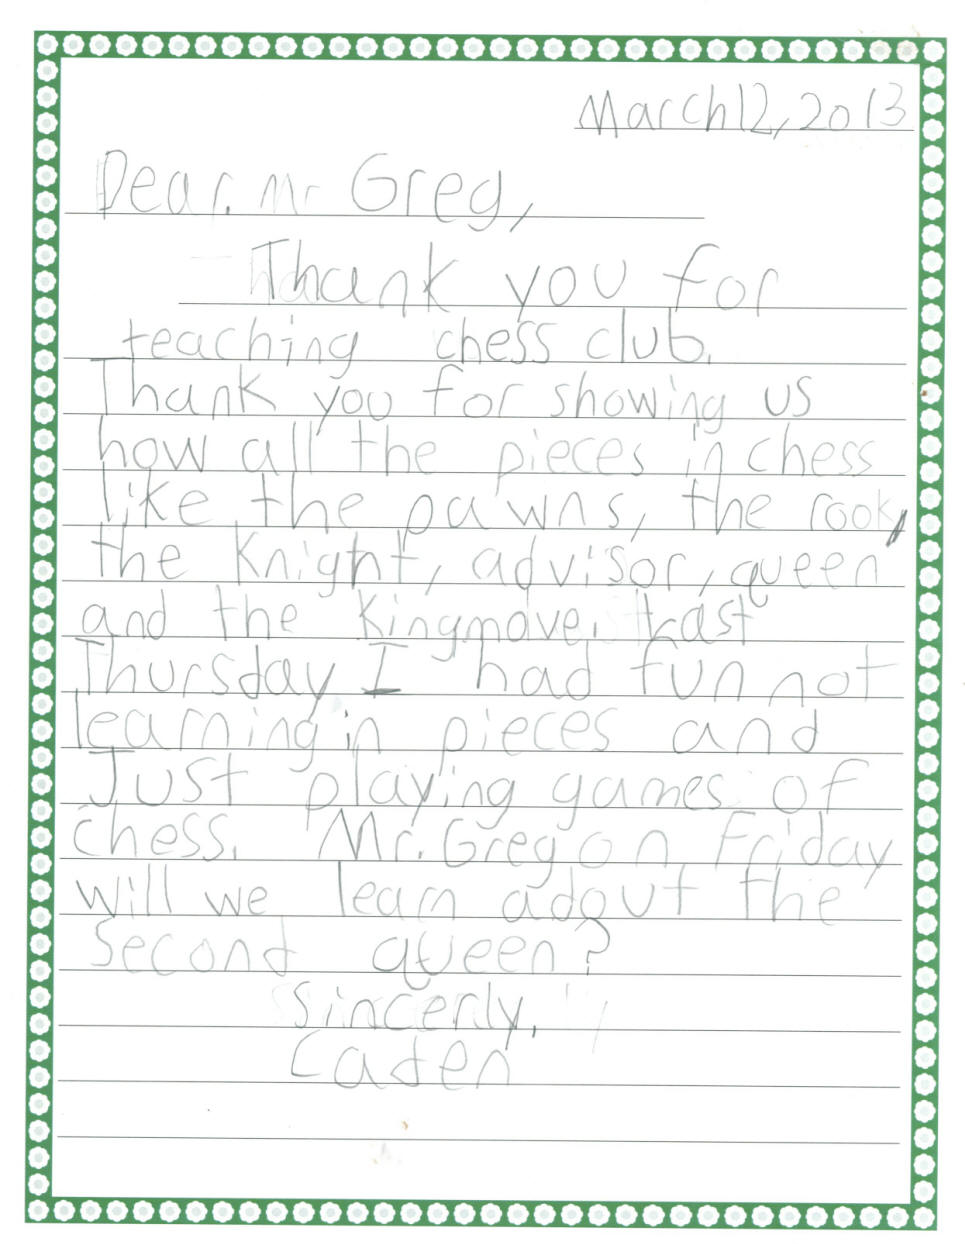 March 12, 2013
Dear. Mr Greg,
Thank you for
teaching chess club.
Thank you for showing us
how all the pieces in chess
like the pawns, the rook,
the Knight, advisor, queen
and the King move. Last
Thursday I had fun not
learning in pieces and
Just playing games of
chess. Mr. Greg on Friday
will we learn adout the
Second queen?
Sincerly,
Caden